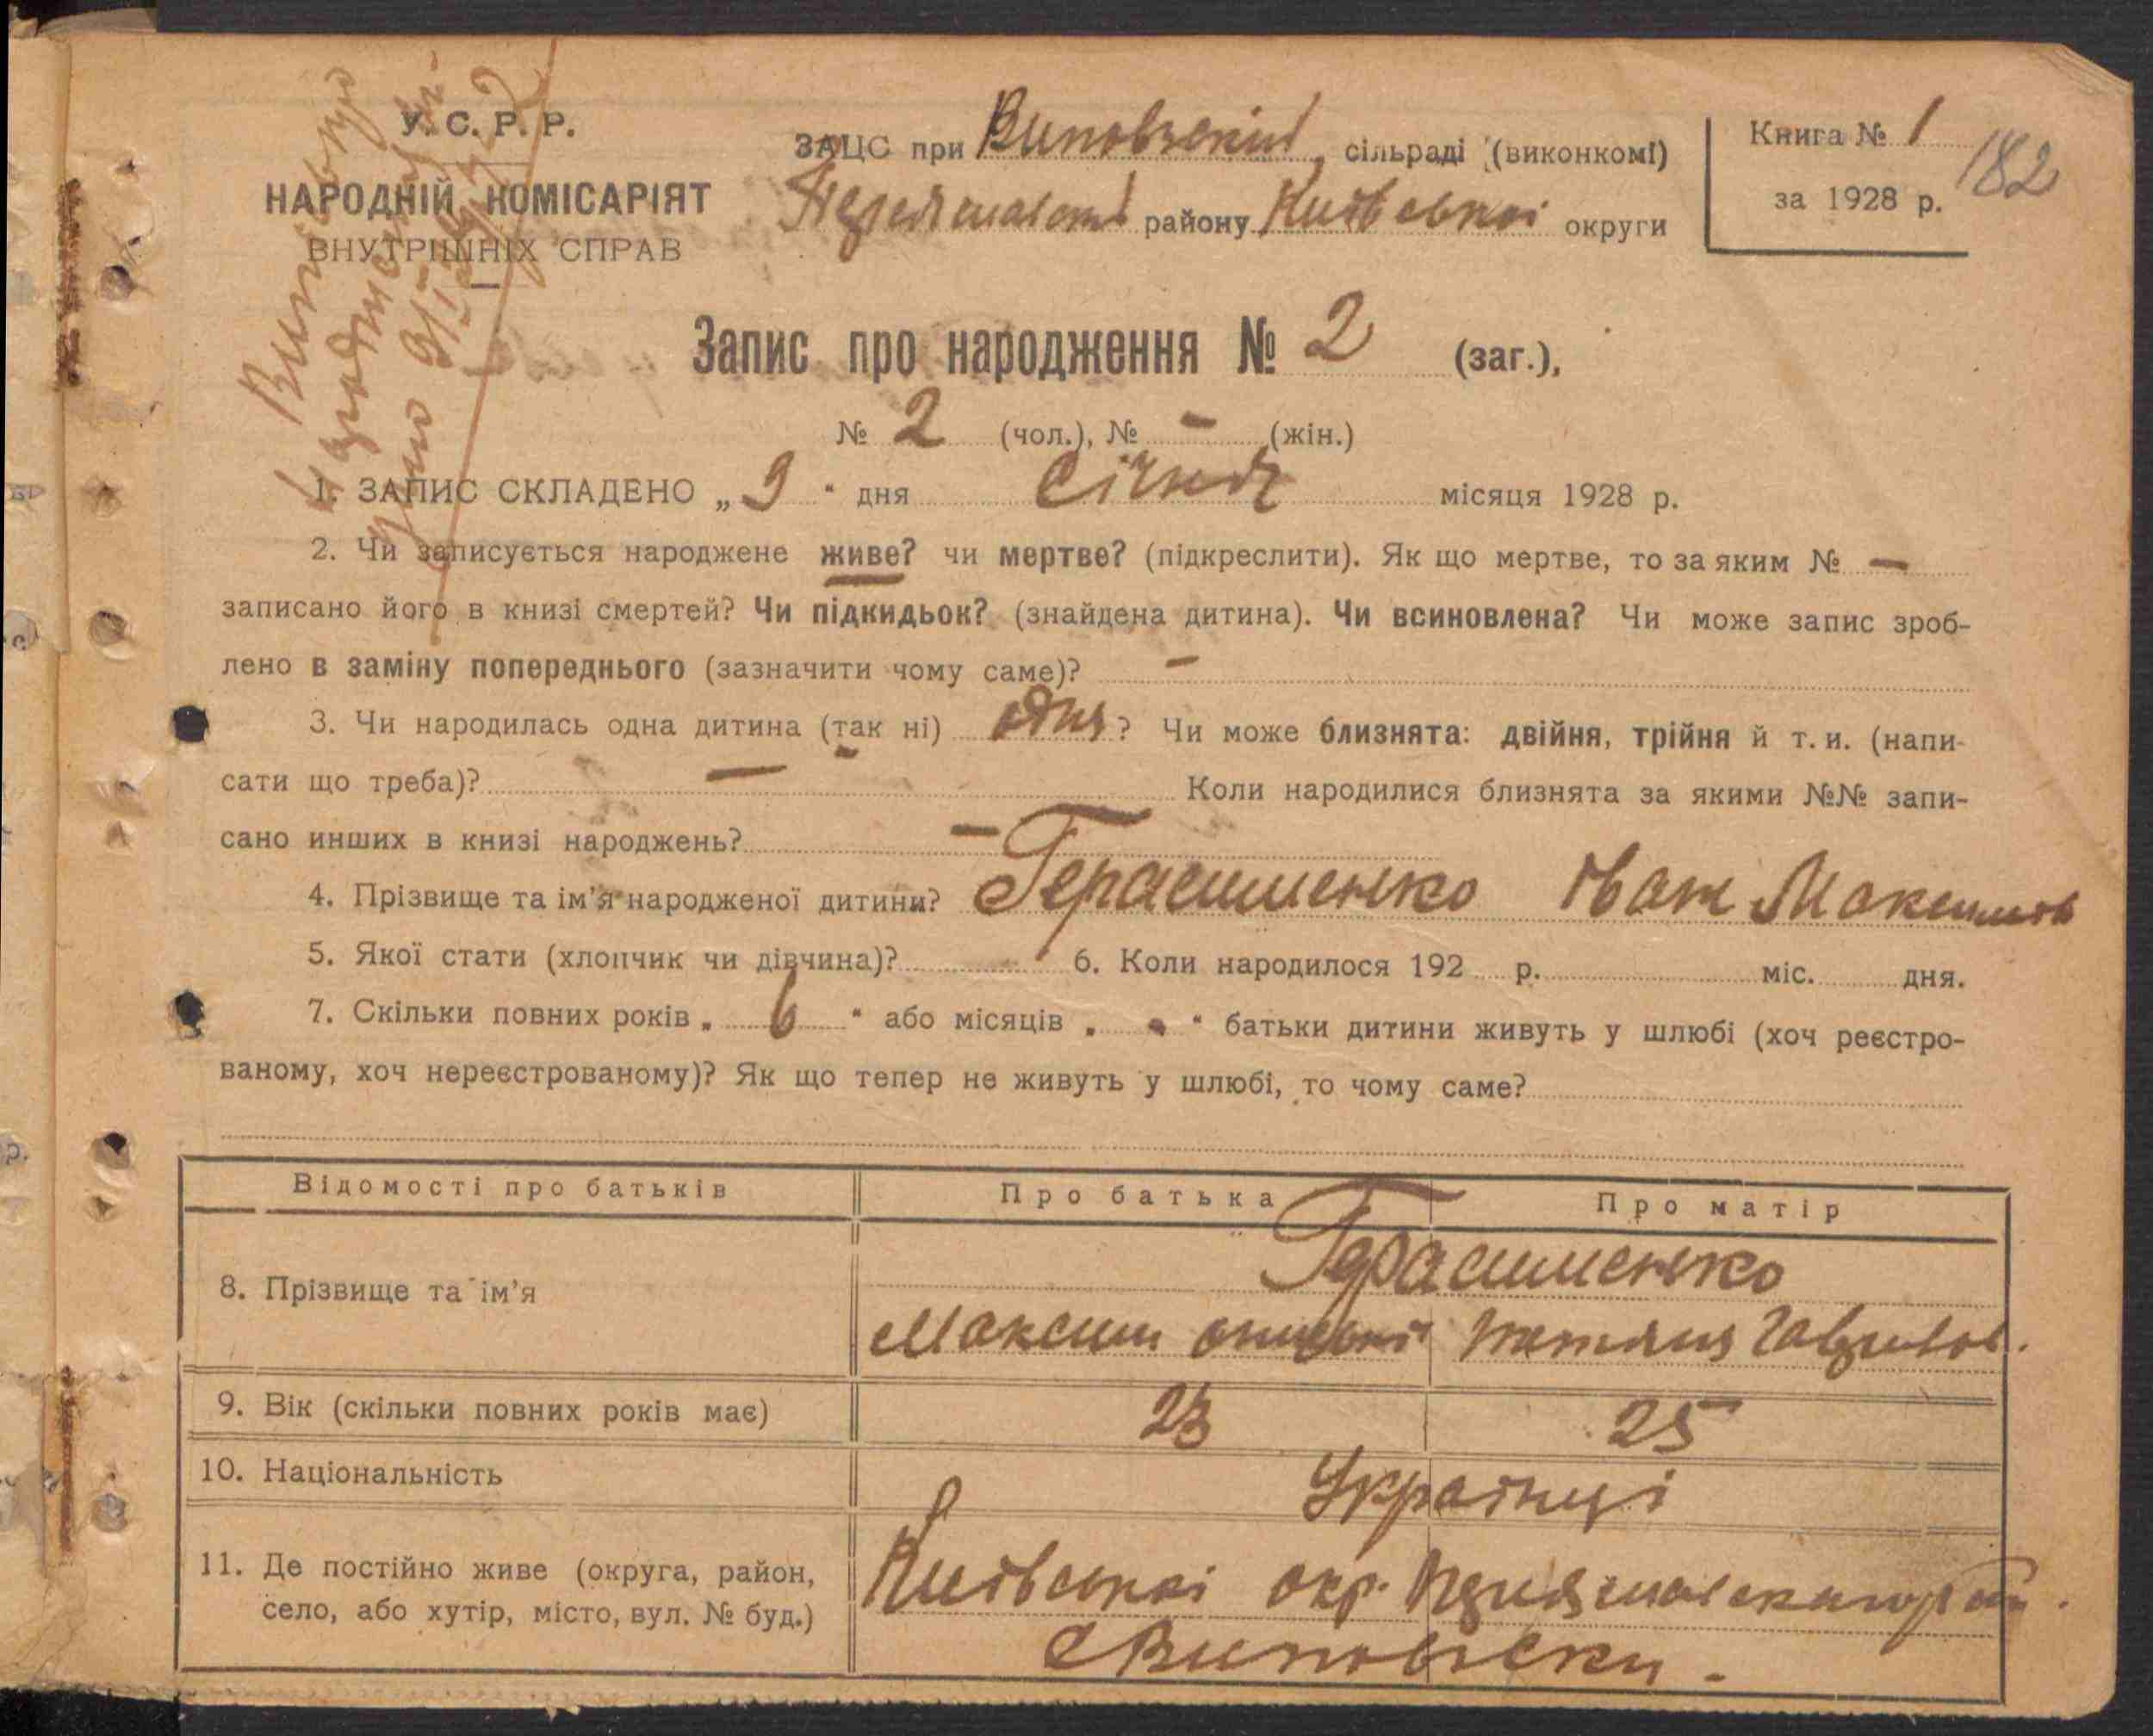 У. С. Р. Р.
НАРОДНІЙ КОМІСАРІЯТ
ВНУТРІШНІХ СПРАВ
ЗАЦС при сільраді (виконкомі)
району Київської округи
Книга № 1
за 1928 р.
182
Запис про народження № 2 (заг.),
№ 2 (чол.), № – (жін.)
1. ЗАПИС СКЛАДЕНО „ 9 " дня Січня місяця 1928 р.
2. Чи записується народжене живе? чи мертве? (підкреслити). Як що мертве, то за яким № –
записано його в книзі смертей? Чи підкидьок? (знайдена дитина). Чи всиновлена? Чи може запис зроб-
лено в заміну попереднього (зазначити чому саме)? –
3. Чи народилась одна дитина (так ні) одна? Чи може близнята: двійня, трійня й т. и. (напи-
сати що треба)? – Коли народилися близнята за якими №№ запи-
сано инших в книзі народжень? –
4. Прізвище та ім'я народженої дитини? Герасименко Іван Максимов
5. Якої стати (хлопчик чи дівчина)? 6. Коли народилося 192 р. міс. дня.
7. Скільки повних років „ 6 " або місяців „ " батьки дитини живуть у шлюбі (хоч реєстро-
ваному, хоч нереєстрованому)? Як що тепер не живуть у шлюбі, то чому саме?
Відомості про батьків Про батька Про матір
8. Прізвище та ім'я Герасименко
Максим Татяна Гаврилов.
9. Вік (скільки повних років має) 23 25
10. Національність Українці
11. Де постійно живе (округа, район,
село, або хутір, місто, вул. № буд.)
Київської окр.